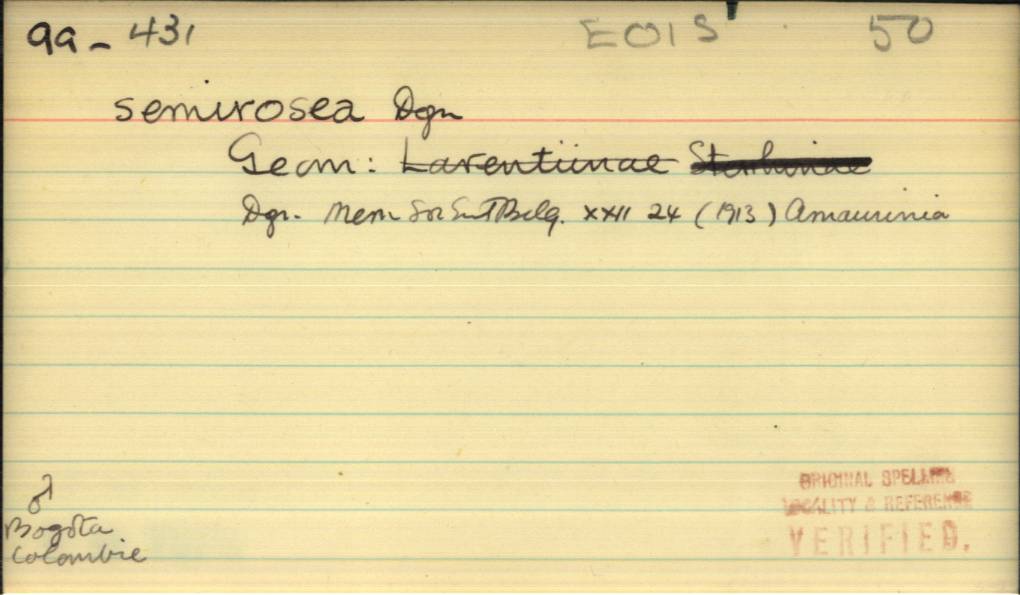 99 - 431 EOIS 50
semirosea Dgn
Geom: Larentiinae Sterrhinae
Dgn. Mem Soc Ent Belg. XXII 24 (1913) Amaurinia
♂
Bogota
Colombie
ORIGINAL SPELLING
LOCALITY & REFERENCE
VERIFIED.